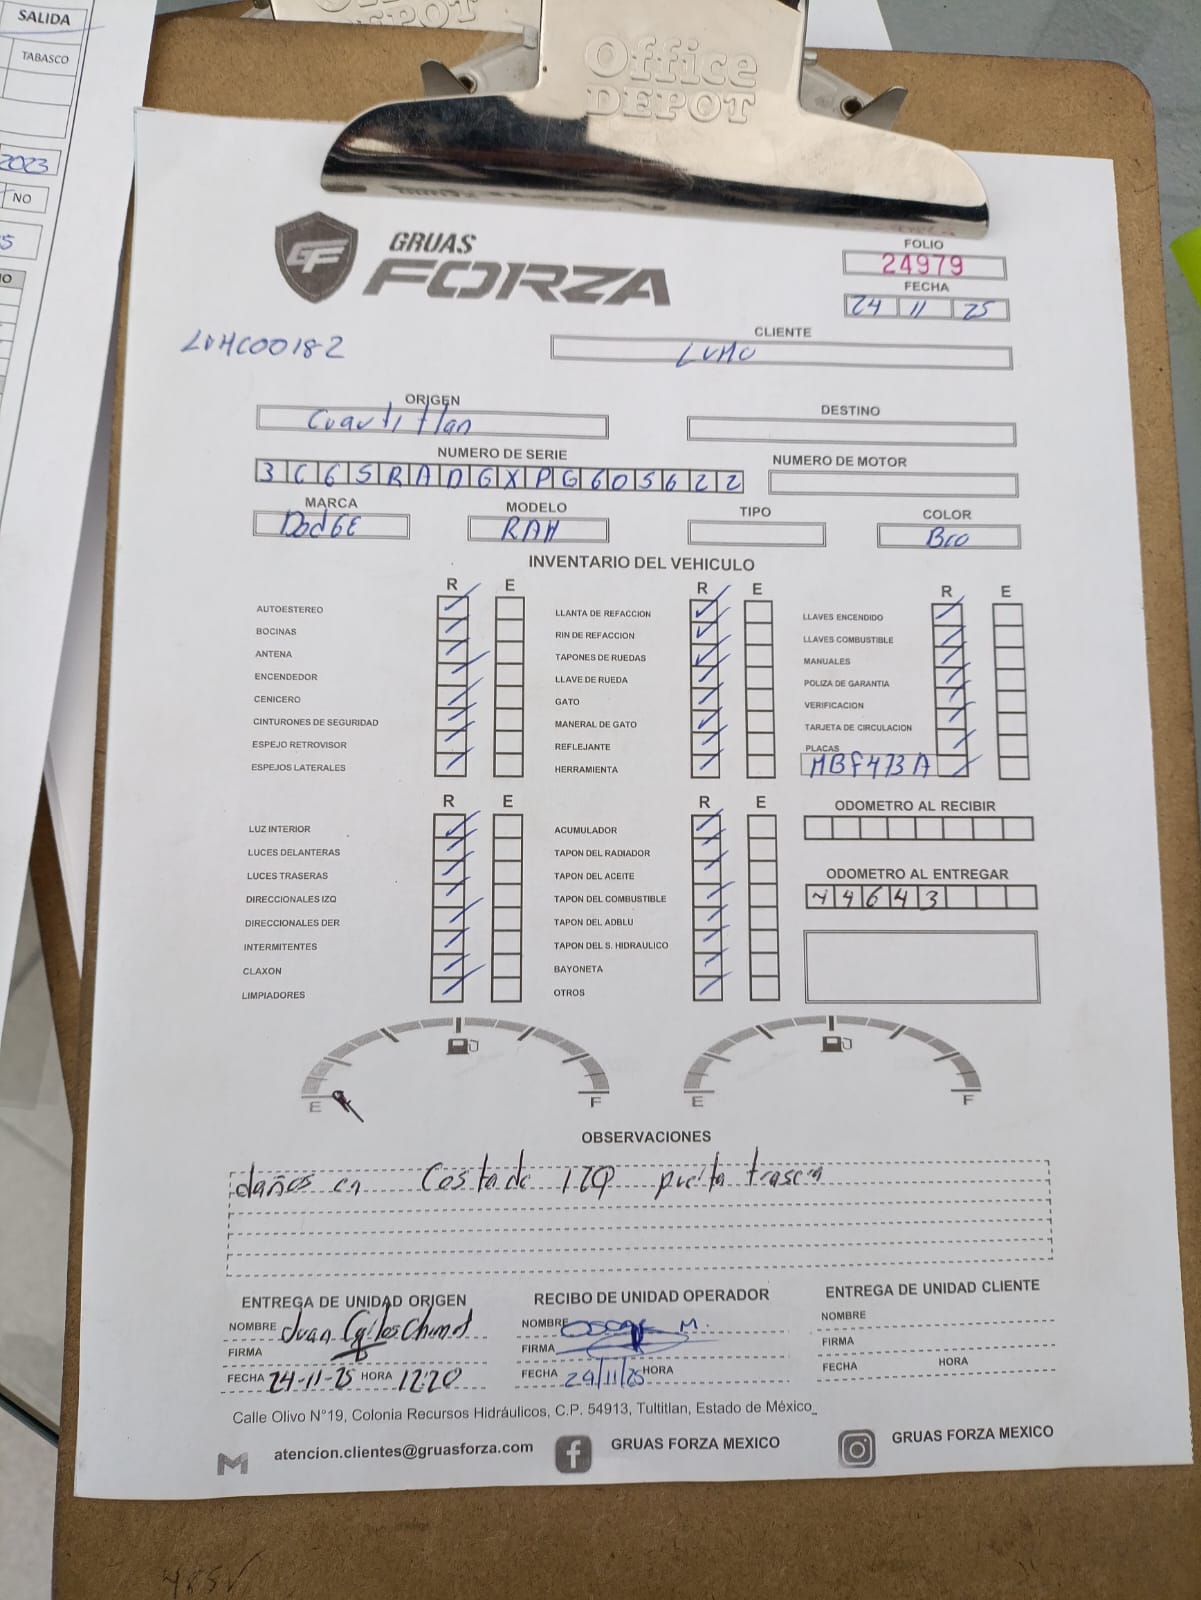 SALIDA
TABASCO
2023
NO
Office
DEPOT
GF
GRUAS
FORZA
FOLIO
24979
FECHA
24 11 25
CLIENTE
LUMO
LUMC00182
ORIGEN
Cuautitlan
DESTINO
NUMERO DE SERIE
3C6SRADGXPG605622
NUMERO DE MOTOR
MARCA
DodGE
MODELO
RAM
TIPO
COLOR
Bco
INVENTARIO DEL VEHICULO
R E R E R E
AUTOESTEREO
BOCINAS
ANTENA
ENCENDEDOR
CENICERO
CINTURONES DE SEGURIDAD
ESPEJO RETROVISOR
ESPEJOS LATERALES
LLANTA DE REFACCION
RIN DE REFACCION
TAPONES DE RUEDAS
LLAVE DE RUEDA
GATO
MANERAL DE GATO
REFLEJANTE
HERRAMIENTA
LLAVES ENCENDIDO
LLAVES COMBUSTIBLE
MANUALES
POLIZA DE GARANTIA
VERIFICACION
TARJETA DE CIRCULACION
PLACAS
MBF473A
R E R E
LUZ INTERIOR
LUCES DELANTERAS
LUCES TRASERAS
DIRECCIONALES IZQ
DIRECCIONALES DER
INTERMITENTES
CLAXON
LIMPIADORES
ACUMULADOR
TAPON DEL RADIADOR
TAPON DEL ACEITE
TAPON DEL COMBUSTIBLE
TAPON DEL ADBLU
TAPON DEL S. HIDRAULICO
BAYONETA
OTROS
ODOMETRO AL RECIBIR
ODOMETRO AL ENTREGAR
4643
E F
E F
OBSERVACIONES
daños en Costado IZQ puerta trasera
ENTREGA DE UNIDAD ORIGEN
NOMBRE Juan
FIRMA
FECHA 24-11-25 HORA 12:20
RECIBO DE UNIDAD OPERADOR
NOMBRE Oscar M.
FIRMA
FECHA 24/11/25 HORA
ENTREGA DE UNIDAD CLIENTE
NOMBRE
FIRMA
FECHA HORA
Calle Olivo N°19, Colonia Recursos Hidráulicos, C.P. 54913, Tultitlan, Estado de México_
atencion.clientes@gruasforza.com
GRUAS FORZA MEXICO
GRUAS FORZA MEXICO